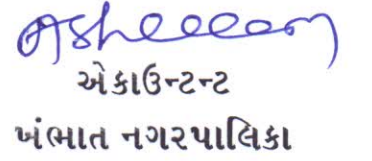 એકાઉન્ટન્ટ
ખંભાત નગરપાલિકા